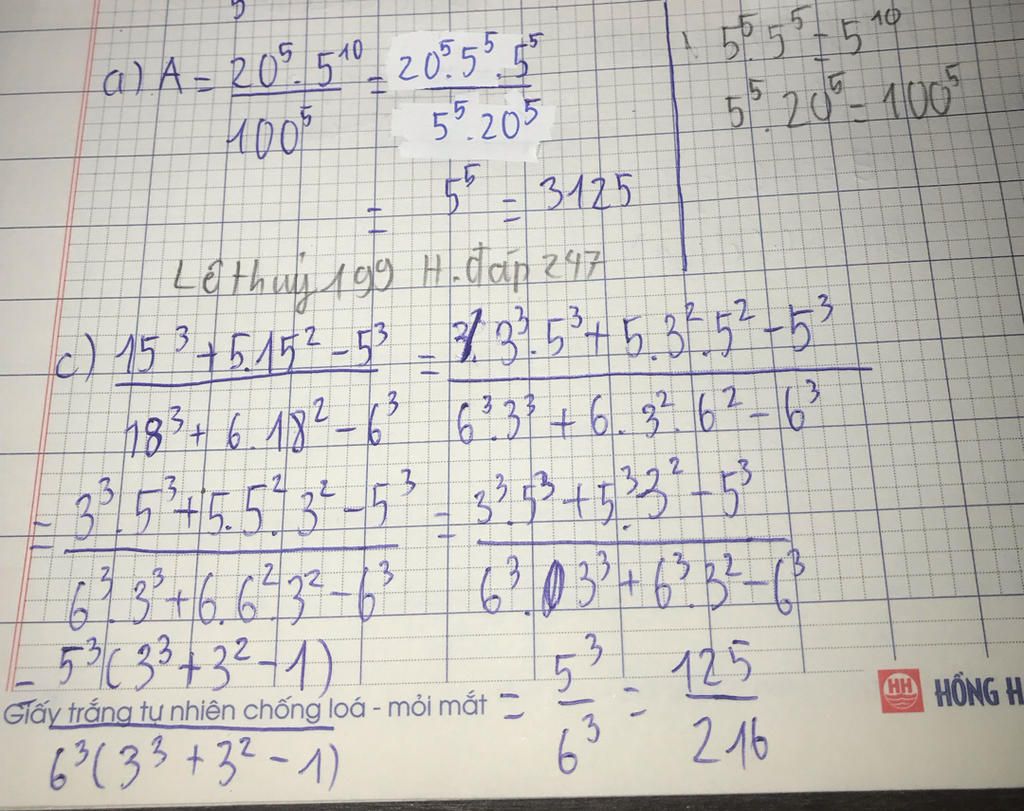 a) A = 20⁵.5¹⁰/100⁵ = 20⁵.5⁵.5⁵/5⁵.20⁵
= 5⁵ = 3125
5⁵.5⁵ = 5¹⁰
5⁵.20⁵ = 100⁵
Lê thuý 199 H.đáp 247
c) 15³ + 5.15² - 5³/18³ + 6.18² - 6³ = 3³.5³ + 5.3².5² - 5³/6³.3³ + 6.3².6² - 6³
= 3³.5³ + 5.5².3² - 5³/6³.3³ + 6.6².3² - 6³ = 3³.5³ + 5³.3² - 5³/6³.3³ + 6³.3² - 6³
= 5³(3³ + 3² - 1)/6³(3³ + 3² - 1) = 5³/6³ = 125/216
Giấy trắng tự nhiên chống loá - mỏi mắt
HH HỒNG H